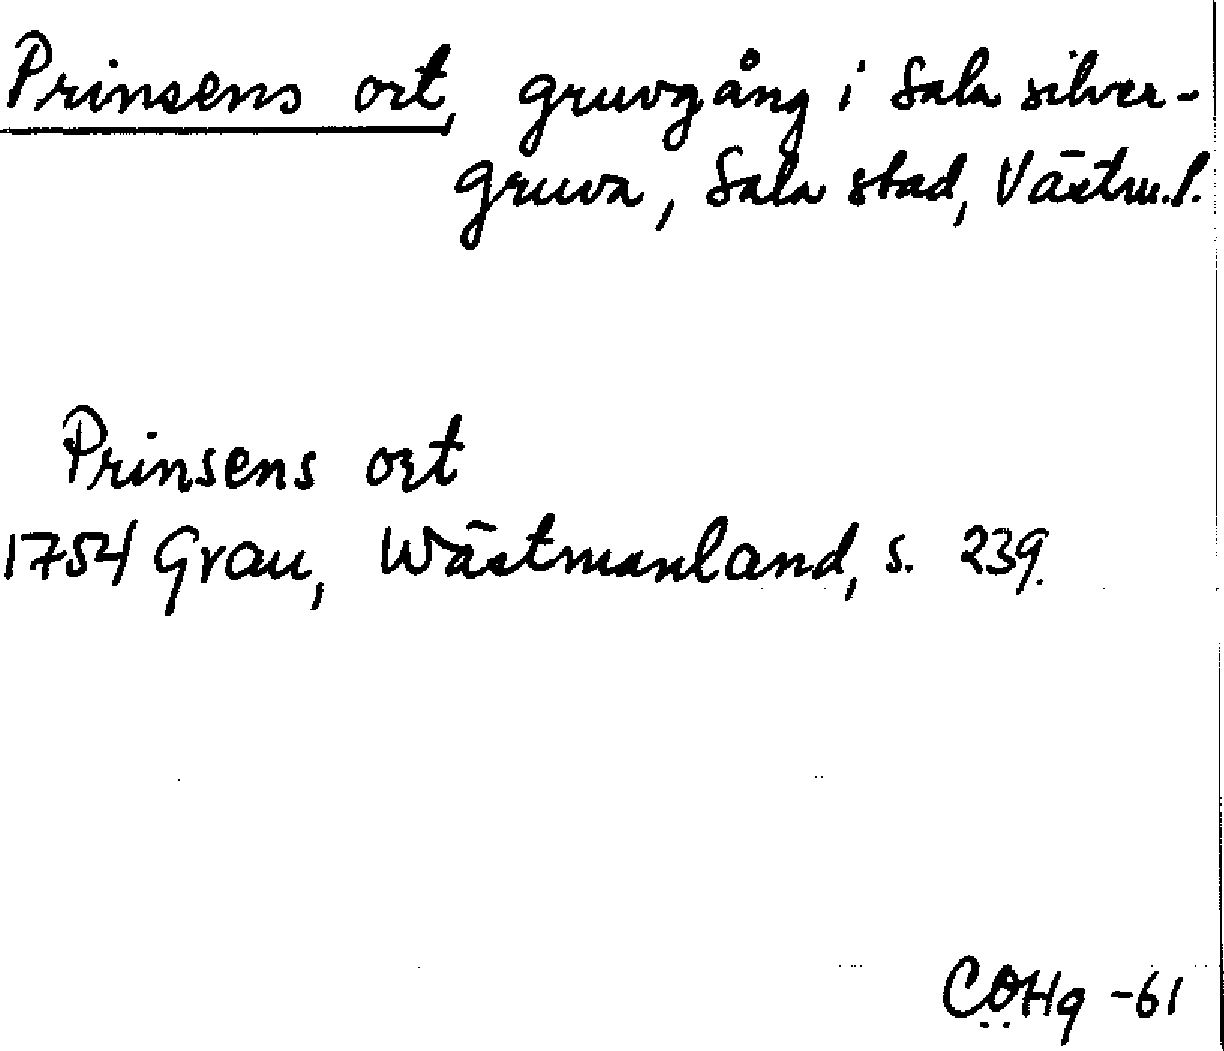 Prinsens ort, gruvgång i Sala silver-
gruva, Sala stad, Västm.l.
Prinsens ort
1754 Grau, Wästmanland, s. 239.
CÖHg -61